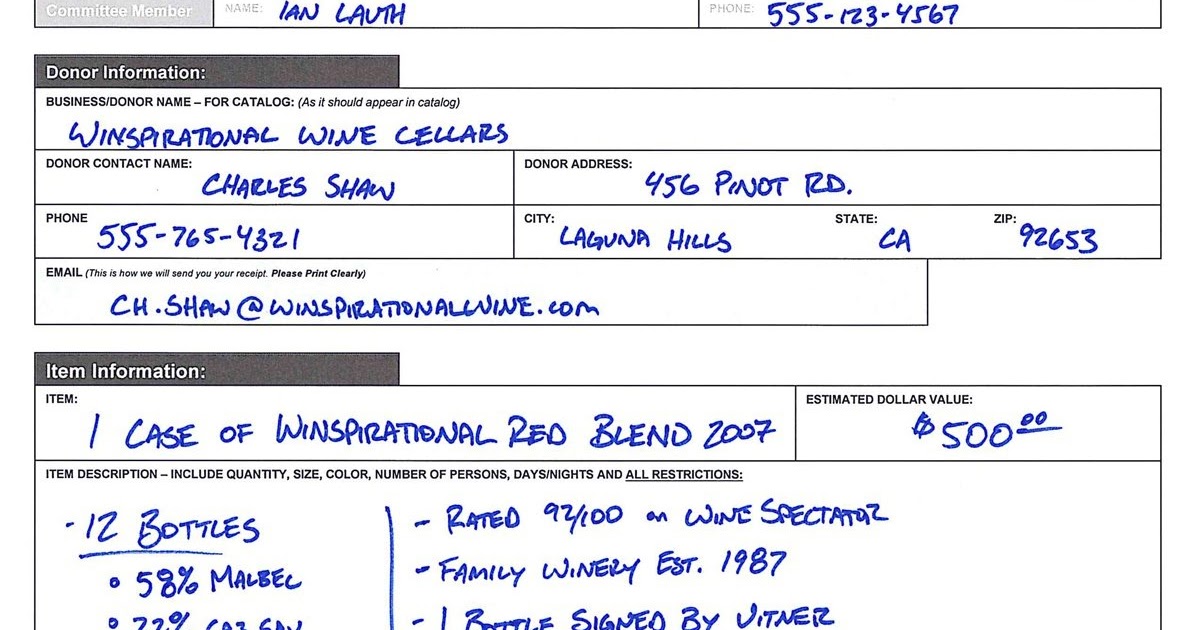 Committee Member NAME: IAN LAUTH PHONE: 555-123-4567
Donor Information:
BUSINESS/DONOR NAME – FOR CATALOG: (As it should appear in catalog)
WINSPIRATIONAL WINE CELLARS
DONOR CONTACT NAME: DONOR ADDRESS:
CHARLES SHAW 456 PINOT RD.
PHONE CITY: STATE: ZIP:
555-765-4321 LAGUNA HILLS CA 92653
EMAIL (This is how we will send you your receipt. Please Print Clearly)
CH.SHAW@WINSPIRATIONALWINE.COM
Item Information:
ITEM: ESTIMATED DOLLAR VALUE:
1 CASE OF WINSPIRATIONAL RED BLEND 2007 $500.00
ITEM DESCRIPTION – INCLUDE QUANTITY, SIZE, COLOR, NUMBER OF PERSONS, DAYS/NIGHTS AND ALL RESTRICTIONS:
- 12 BOTTLES
58% MALBEC
22% CAB SAV
- RATED 92/100 on WINE SPECTATOR
- FAMILY WINERY EST. 1987
- 1 BOTTLE SIGNED BY VITNER